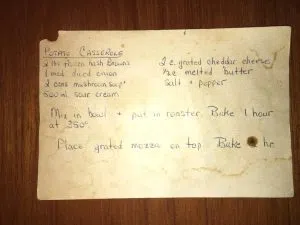 POTATO CASSEROLE
2 lbs frozen hash browns
1 med. diced onion
2 cans mushroom soup
500 ml sour cream
2 c. grated cheddar cheese
1/2 c melted butter
Salt + pepper
Mix in bowl + put in roaster. Bake 1 hour
at 350°.
Place grated mozza on top Bake hr